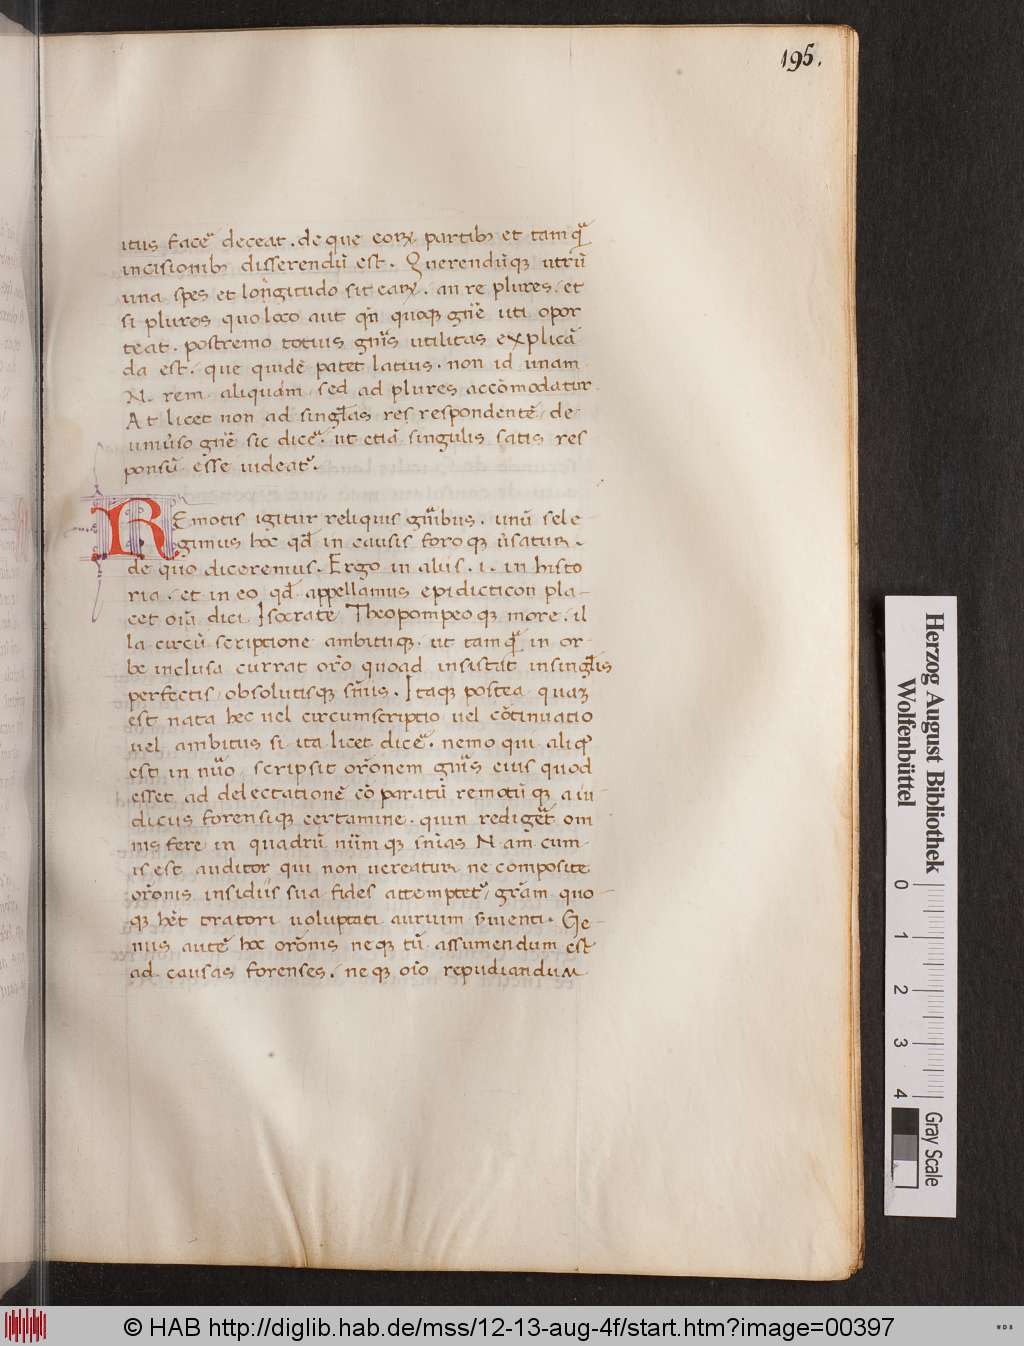 195.
itus facẽ deceat. de que eoꝝ partibꝫ et tamq̃
incisionibꝫ disserendũ est. Querendũqꝫ utrũ
una spẽs et longitudo sit eaꝝ. an re plures. et
si plures quo loco aut qñ quoqꝫ gñe uti opor
teat. postremo totius gñis utilitas explicã
da est. que quidẽ patet latius. non id unam
N. rem aliquam sed ad plures accõmodatur
At licet non ad singl̃as res respondentẽ. de
uniũso gñe sic dicẽ. ut etiã singulis satis res
ponsũ esse uideat᷑.
REmotis igitur reliquis gñibus. unũ sele
gimus hoc qd̃ in causis foroqꝫ ũsatur.
de quo diceremus. Ergo in aliis. i. in histo
ria. et in eo qd̃ appellamus epidicticon pla-
cet oĩa dici Isocrate Theopompeoqꝫ more. il
la circũ scriptione ambituqꝫ. ut tamq̃ in or
be inclusa currat orõ quoad insistat in singl̃is
perfectis. obsolutisqꝫ sñiis. Itaqꝫ postea quaꝫ
est nata hec uel circumscriptio uel cõtinuatio
uel ambitus si ita licet dicẽ. nemo qui aliq̃
est in nũo. scripsit orõnem gñis eius quod
esset ad delectationẽ cõ paratũ remotũ qꝫ a iu
diciis forensiqꝫ certamine. quin redigẽt om
nis fere in quadrũ nũmqꝫ sñias Nam cum
is est auditor qui non uereatur ne composite
orõnis insidiis sua fides attemptet᷑, grãm quo
qꝫ hẽt oratori uoluptati aurium sũienti. Ge-
nus autẽ hoc orõnis neqꝫ tũ assumendum est
ad causas forenses. neqꝫ oĩo repudiandum
Herzog August Bibliothek
Wolfenbüttel
0 1 2 3 4
Gray Scale
© HAB http://diglib.hab.de/mss/12-13-aug-4f/start.htm?image=00397